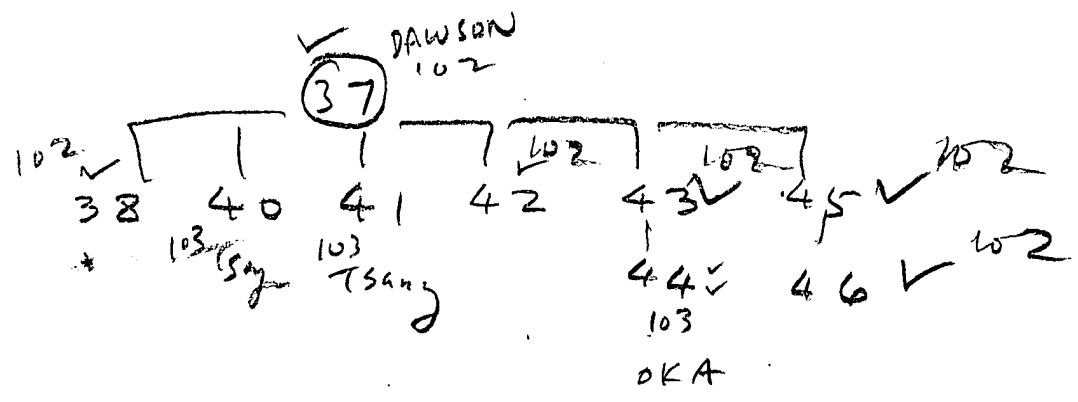 ✓ DAWSON
102
37
102 ✓ 102 102 102
38 40 41 42 ✓ 43 ✓ 45 ✓
* 103 103 Tsang
44 ✓✓ 46 ✓ 102
103
OKA